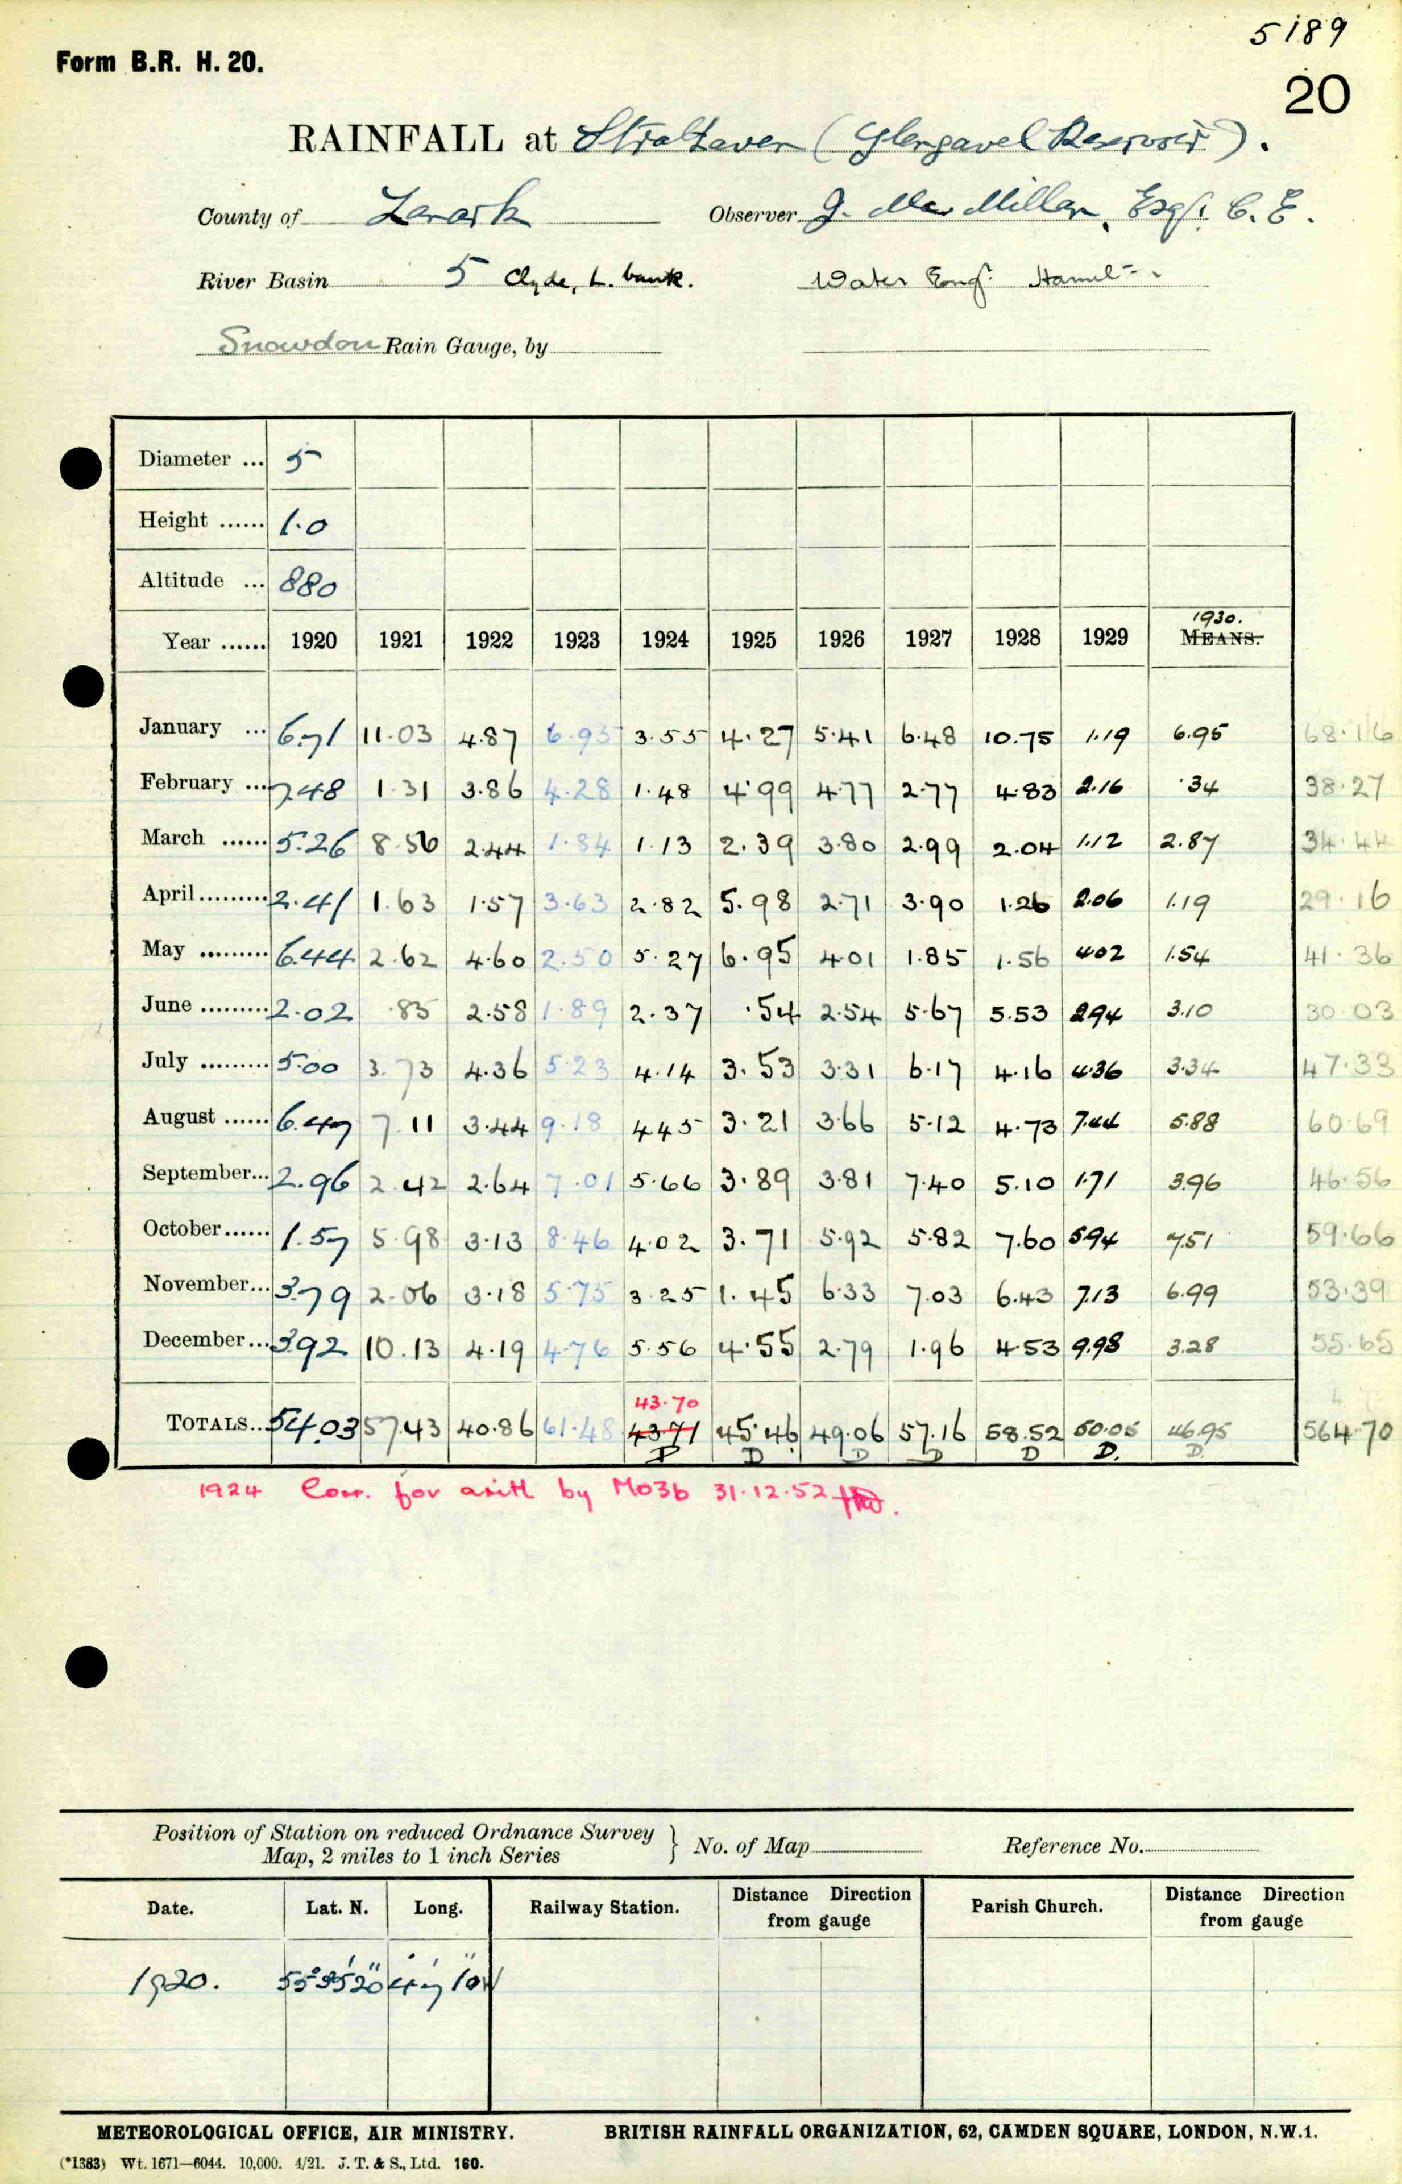 5189
Form B.R. H. 20.
20
RAINFALL at Strathaven (Glengavel Reservoir).
County of Lanark Observer J. MacMillan, Esq. C.E.
River Basin 5 Clyde, L. bank. Water Engr. Hamilton
Snowdon Rain Gauge, by
Diameter ... 5
Height ...... 1.0
Altitude ... 880
1930.
Year ...... 1920 1921 1922 1923 1924 1925 1926 1927 1928 1929 MEANS.
January ... 6.71 11.03 4.87 6.95 3.55 4.27 5.41 6.48 10.75 1.19 6.95 68.16
February ... 7.48 1.31 3.86 4.28 1.48 4.99 4.77 2.77 4.83 2.16 .34 38.27
March ...... 5.26 8.56 2.44 1.84 1.13 2.39 3.80 2.99 2.04 1.12 2.87 34.44
April ......... 2.41 1.63 1.57 3.63 2.82 5.98 2.71 3.90 1.26 2.06 1.19 29.16
May ......... 6.44 2.62 4.60 2.50 5.27 6.95 4.01 1.85 1.56 4.02 1.54 41.36
June ......... 2.02 .85 2.58 1.89 2.37 .54 2.54 5.67 5.53 2.94 3.10 30.03
July ......... 5.00 3.73 4.36 5.23 4.14 3.53 3.31 6.17 4.16 4.36 3.34 47.33
August ...... 6.47 7.11 3.44 9.18 4.45 3.21 3.66 5.12 4.73 7.44 5.88 60.69
September... 2.96 2.42 2.64 7.01 5.66 3.89 3.81 7.40 5.10 1.71 3.96 46.56
October...... 1.57 5.98 3.13 8.46 4.02 3.71 5.92 5.82 7.60 5.94 7.51 59.66
November... 3.79 2.06 3.18 5.75 3.25 1.45 6.33 7.03 6.43 7.13 6.99 53.39
December... 3.92 10.13 4.19 4.76 5.56 4.55 2.79 1.96 4.53 9.98 3.28 55.65
43.70
TOTALS.. 54.03 57.43 40.86 61.48 43.71 45.46 49.06 57.16 58.52 50.05 46.95 564.70
D D D D D D. D.
1924 Corr. for arith by M03b 31.12.52
Position of Station on reduced Ordnance Survey
Map, 2 miles to 1 inch Series } No. of Map Reference No.
Date. Lat. N. Long. Railway Station. Distance Direction from gauge Parish Church. Distance Direction from gauge
1920. 55° 35' 20" 4° 7' 10" W
METEOROLOGICAL OFFICE, AIR MINISTRY. BRITISH RAINFALL ORGANIZATION, 62, CAMDEN SQUARE, LONDON, N.W.1.
(*1383) Wt. 1671—6044. 10,000. 4/21. J. T. & S., Ltd. 160.